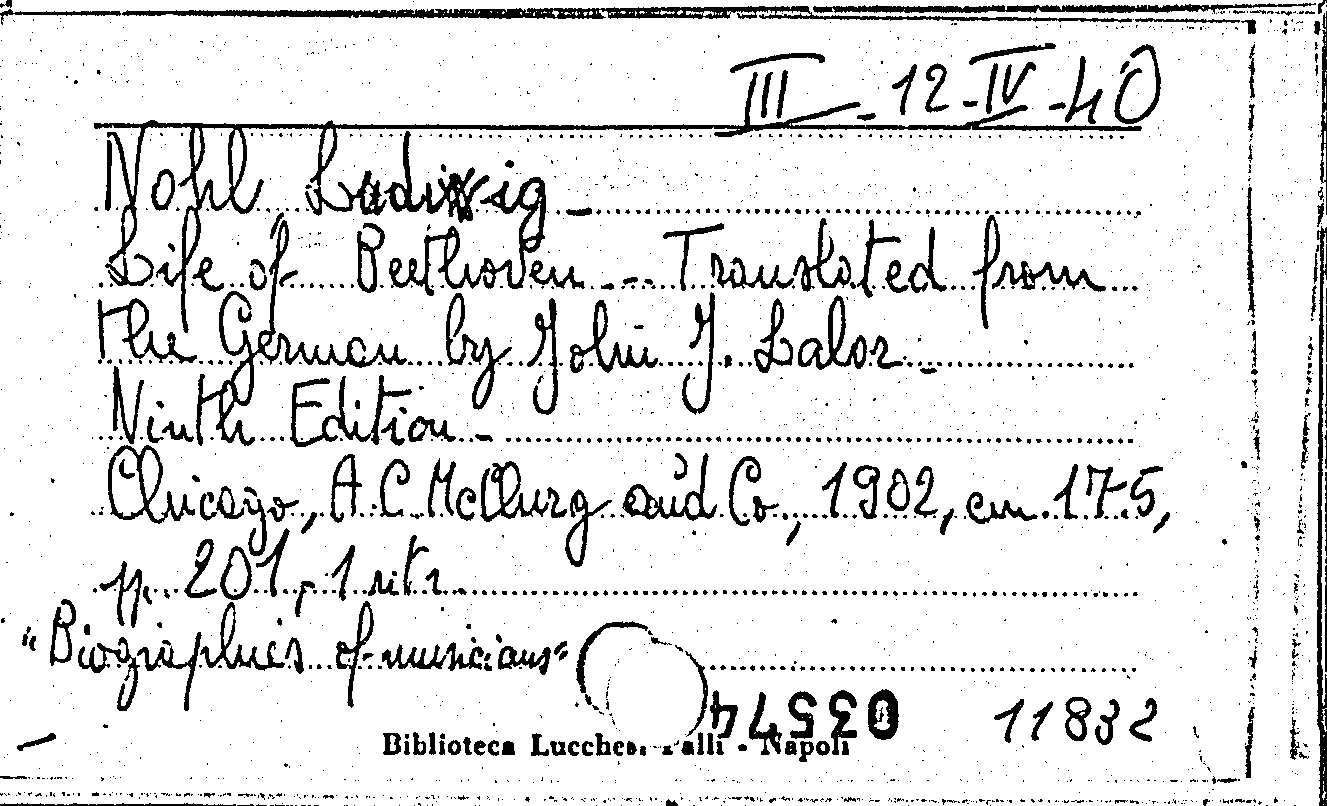 III - 12 - IV - 40
Nohl Ludwig -
Life of Beethoven -- Translated from
the German by John J. Lalor -
Ninth Edition -
Chicago, A. C. McClurg and Co., 1902, cm. 17.5,
pp. 201, 1 ritr.
"Biographies of musicians"
03574 11832
Biblioteca Lucchesi Palli - Napoli